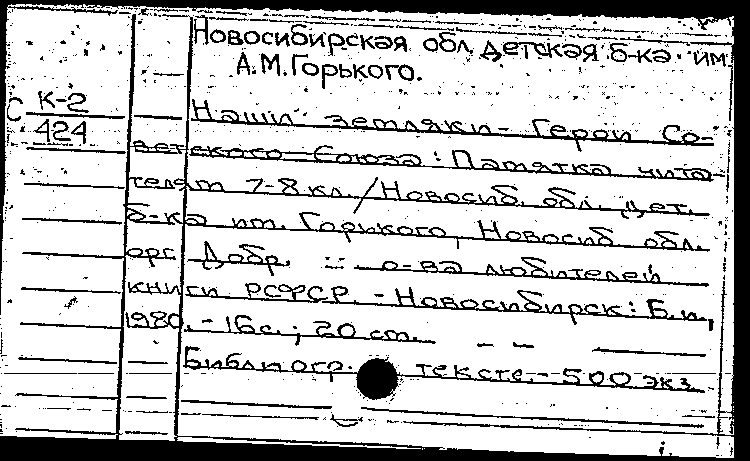 Новосибирская обл. детская б-ка им
А.М.Горького.
С К-2
424
Наши земляки - Герои Со-
ветского Союза: Памятка чита-
телям 7-8 кл./Новосиб. обл. дет.
б-ка им. Горького, Новосиб обл.
орг Добр. о-ва любителей
книги РСФСР. - Новосибирск: Б.и.,
1980. - 16с.; 20 см.
Библиогр. тексте. - 500 экз